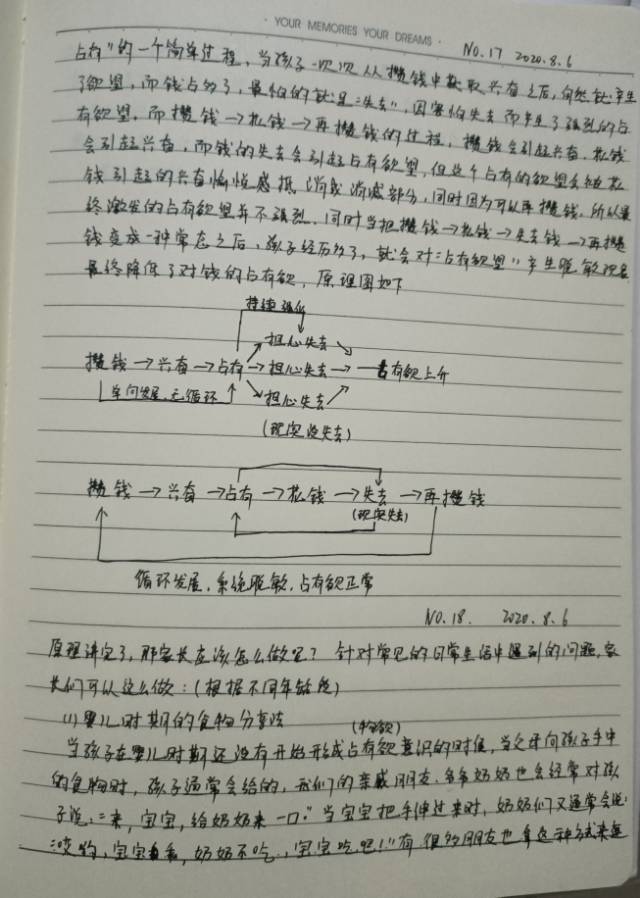 YOUR MEMORIES YOUR DREAMS
NO.17 2020.8.6
占有"的一个简单过程，当孩子一次次从攒钱中获取兴奋之后，自然就产生
了欲望，而钱占多了，最怕的就是"失去"，因害怕失去而产生了强烈的占
有欲望。而攒钱→花钱→再攒钱的过程，攒钱会引起兴奋，花钱
会引起兴奋，而钱的失去会引起占有欲望，但这个占有的欲望会被花
钱引起的兴奋愉悦感抵消或消减部分，同时因为可以再攒钱，所以最
终激发的占有欲望并不强烈。同时当把攒钱→花钱→失去钱→再攒
钱变成一种常态之后，孩子经历多了，就会对"占有欲望"产生脱敏现象
最终降低了对钱的占有欲，原理图如下
持续强化
担心失去
攒钱→兴奋→占有→担心失去→占有欲上升
单向发展，无循环
担心失去
(现实没失去)
攒钱→兴奋→占有→花钱→失去→再攒钱
(现实失去)
循环发展，系统脱敏，占有欲正常
NO.18. 2020.8.6
原理讲完了，那家长应该怎么做呢？针对常见的日常生活中遇到的问题，家
长们可以这么做：(根据不同年龄段)
(1)婴儿时期的食物分享法
(物欲)
当孩子在婴儿时期还没有开始形成占有欲意识的时候，当父母向孩子手中
的食物时，孩子通常会给的，我们的亲戚朋友、爷爷奶奶也会经常对孩
子说："来，宝宝，给奶奶来一口。"当宝宝把手伸过来时，奶奶们又通常会说：
"哎哟，宝宝乖，奶奶不吃，宝宝吃吧！"有很多朋友也拿这种方式来逗